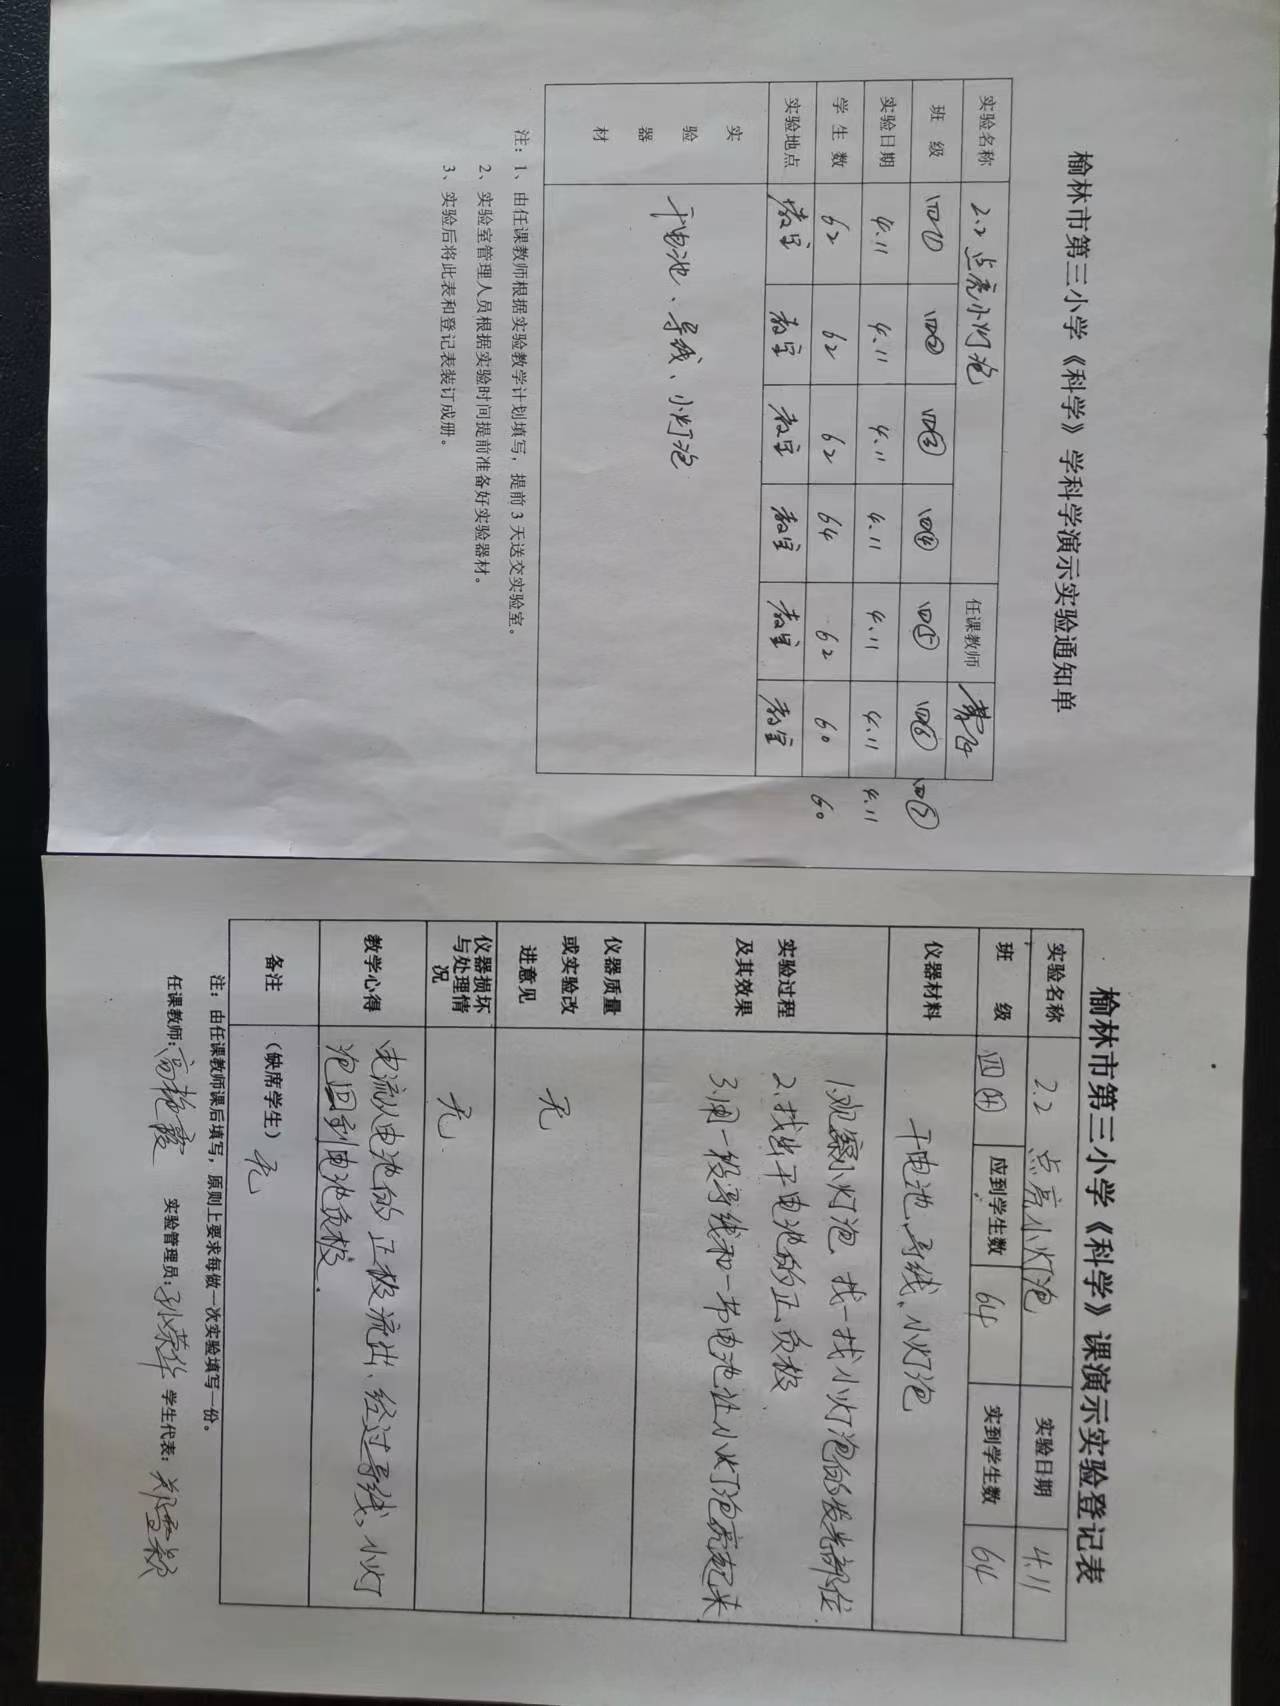 榆林市第三小学《科学》学科学演示实验通知单
实验名称 2.2 点亮小灯泡 任课教师
班 级 四① 四② 四③ 四④ 四⑤ 四⑥
实验日期 4.11 4.11 4.11 4.11 4.11 4.11 4.11
学 生 数 62 62 62 64 62 60 60
实验地点 教室 教室 教室 教室 教室 教室
实 验 器 材 干电池、导线、小灯泡
注：1、由任课教师根据实验教学计划填写，提前 3 天送交实验室。
2、实验室管理人员根据实验时间提前准备好实验器材。
3、实验后将此表和登记表装订成册。
榆林市第三小学《科学》课演示实验登记表
实验名称 2.2 点亮小灯泡 实验日期 4.11
班 级 四④ 应到学生数 64 实到学生数 64
仪器材料 干电池、导线、小灯泡
实验过程及其效果
1.观察小灯泡，找一找小灯泡的发光部位.
2.找出干电池的正、负极
3.用一段导线和一节电池让小灯泡亮起来
仪器质量或实验改进意见 无
仪器损坏与处理情况 无
教学心得 电流从电池的正极流出、经过导线、小灯
泡回到电池负极.
备注 （缺席学生）无
注：由任课教师课后填写，原则上要求每做一次实验填写一份。
任课教师:高艳霞 实验管理员:孙荣华 学生代表: